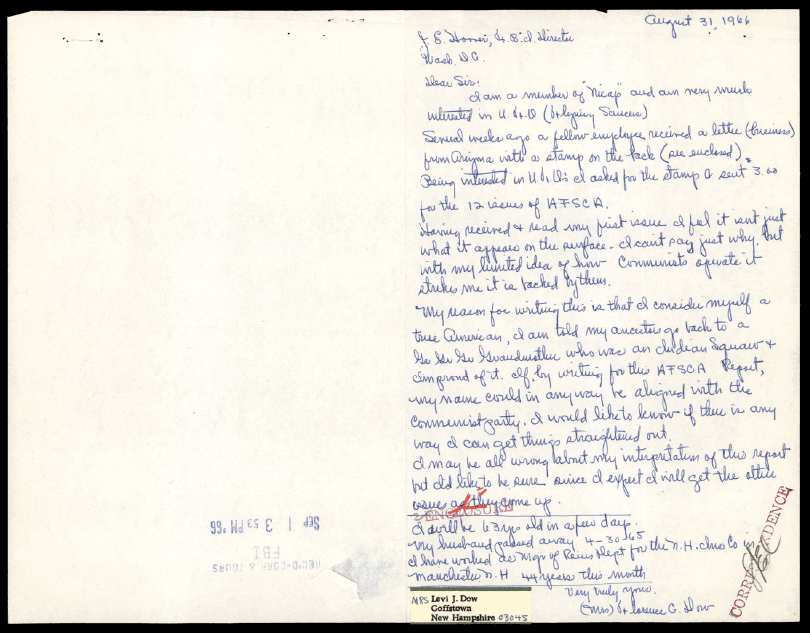 August 31, 1966
J. E. Hoover, F.B.I. Director
Wash. D.C.
Dear Sir:
I am a member of "Nicap" and am very much
interested in U.F.O (Flying Saucers)
Several weeks ago a fellow employee received a letter (business)
from Arizona with a stamp on the back (see enclosed).
Being interested in U.F.O's I asked for the stamp & sent 3.00
for the 12 issues of AFSCA.
Having received & read my first issue I feel it isn't just
what it appears on the surface - I can't say just why, but
with my limited idea of how Communists operate it
strikes me it is backed by them.
My reason for writing this is that I consider myself a
true American, I am told my ancestors go back to a
Gr Gr Gr Grandmother who was an Indian Squaw &
am proud of it. If, by writing for this AFSCA Report,
my name could in anyway be aligned with the
Communist party. I would like to know if there is any
way I can get things straightened out.
I may be all wrong about my interpretation of this report
but I'd like to be sure since I expect I will get the other
issues as they come up.
ENCLOSURE
I will be 63 yrs old in a few days.
My husband passed away 4-30-65
I have worked as Mgr of Reins Dept for the N.H. Ins Co in
Manchester N.H 44 years this month
Very truly yours,
(Mrs) Florence C. Dow
MRS Levi J. Dow
Goffstown
New Hampshire 03045
CORRESPONDENCE
SEP 1 3 53 PM '66
FBI
REC'D-CORR & TOURS